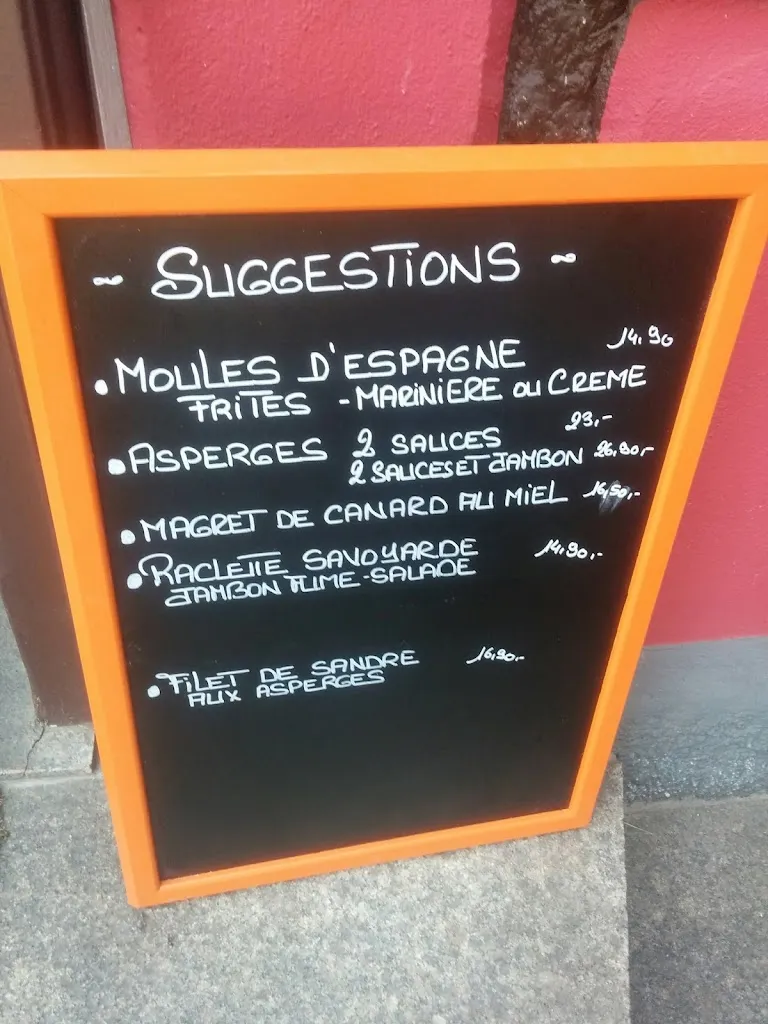 ~ SUGGESTIONS ~
14.90
• MOULES D'ESPAGNE
FRITES - MARINIERE OU CREME
23,-
• ASPERGES 2 SAUCES
2 SAUCES ET JAMBON 26,90,-
• MAGRET DE CANARD AU MIEL 16,50,-
• RACLETTE SAVOYARDE 14.90,-
JAMBON FUME - SALADE
• FILET DE SANDRE 16,90,-
AUX ASPERGES